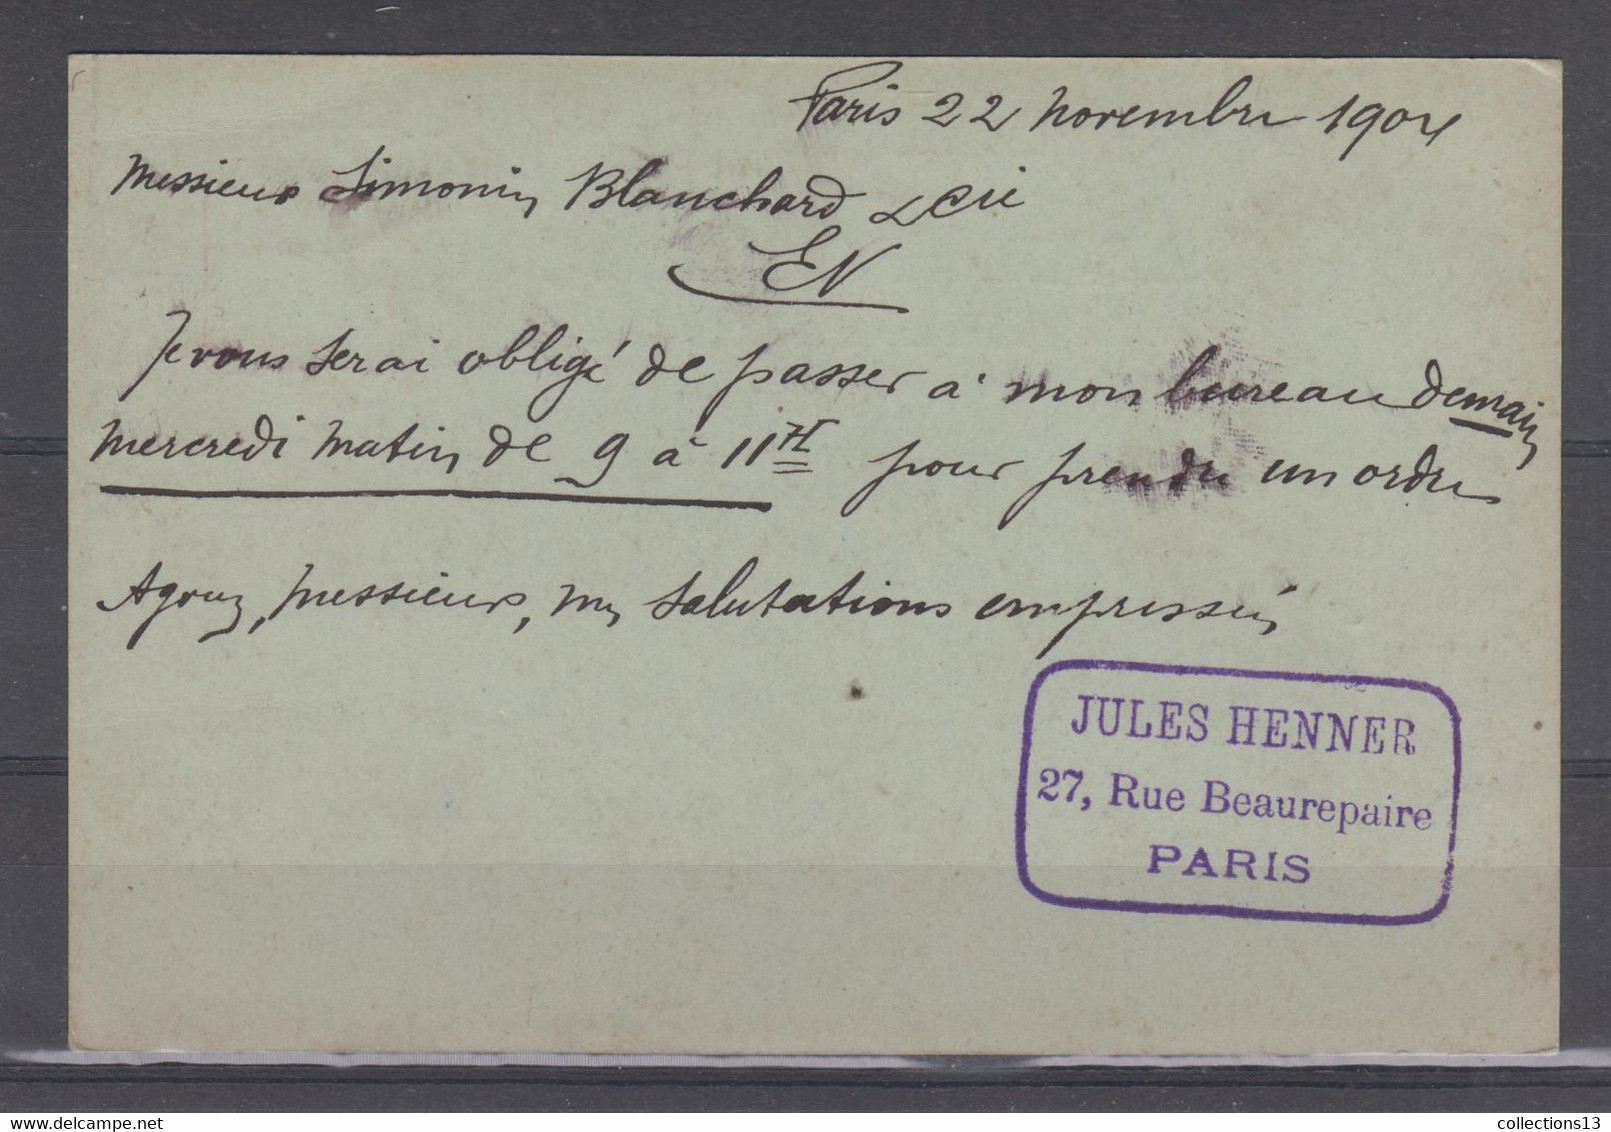 Paris 22 novembre 1904
Messieurs Simonin, Blanchard & Cie
EV
Je vous serai obligé de passer à mon bureau demain
mercredi matin de 9 à 11 H pour prendre un ordre
Agréez, messieurs, mes salutations empressées
JULES HENNER
27, Rue Beaurepaire
PARIS
collections13